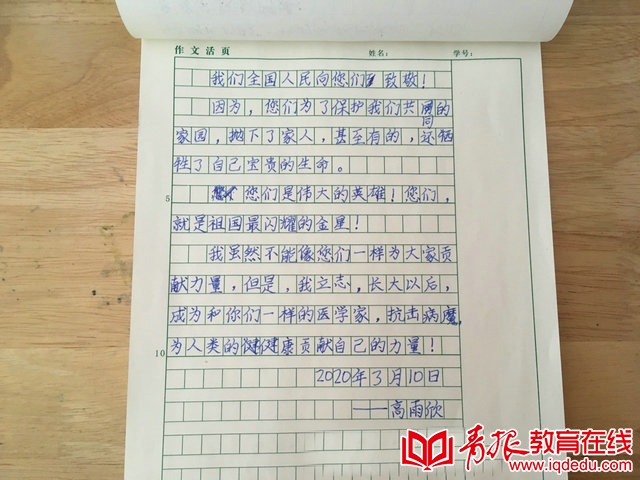 作文活页 姓名: 学号:
我们全国人民向您们致敬!
因为,您们为了保护我们共同的
家园,抛下了家人,甚至有的,还牺
牲了自己宝贵的生命。
5
您们是伟大的英雄!您们,
就是祖国最闪耀的金星!
我虽然不能像您们一样为大家贡
献力量,但是,我立志,长大以后,
成为和你们一样的医学家,抗击病魔,
10 为人类的健康贡献自己的力量!
2020年3月10日
——高雨欣
青报教育在线
www.iqdedu.com